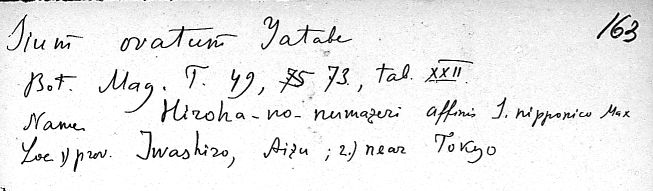 Sium ovatum Yatabe 163
Bot. Mag. T. 49, 75 73, tab. XXII.
Name Hiroha-no-numazeri affinis S. nipponico Max
Loc 1) prov. Iwashiro, Aizu ; 2.) near Tokyo